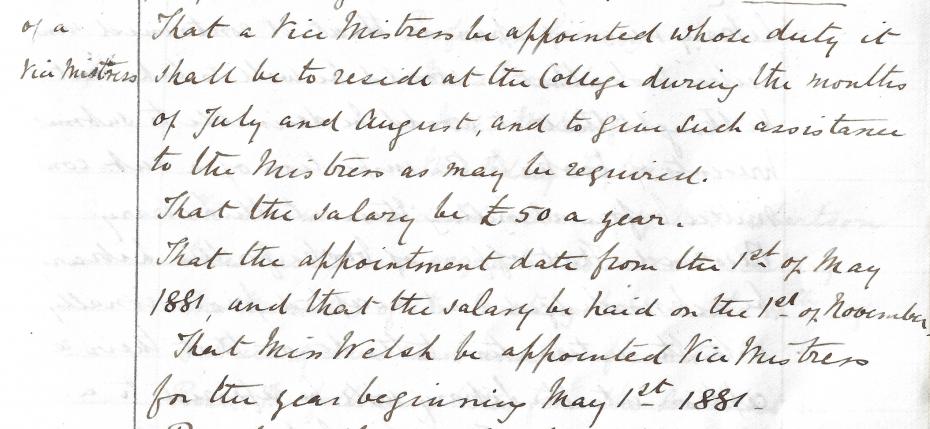 of a
Vice Mistress
That a Vice Mistress be appointed whose duty it
shall be to reside at the College during the months
of July and August, and to give such assistance
to the Mistress as may be required.
That the salary be £50 a year.
That the appointment date from the 1st of May
1881 and that the salary be paid on the 1st of November.
That Miss Welsh be appointed Vice Mistress
for the year beginning May 1st 1881.